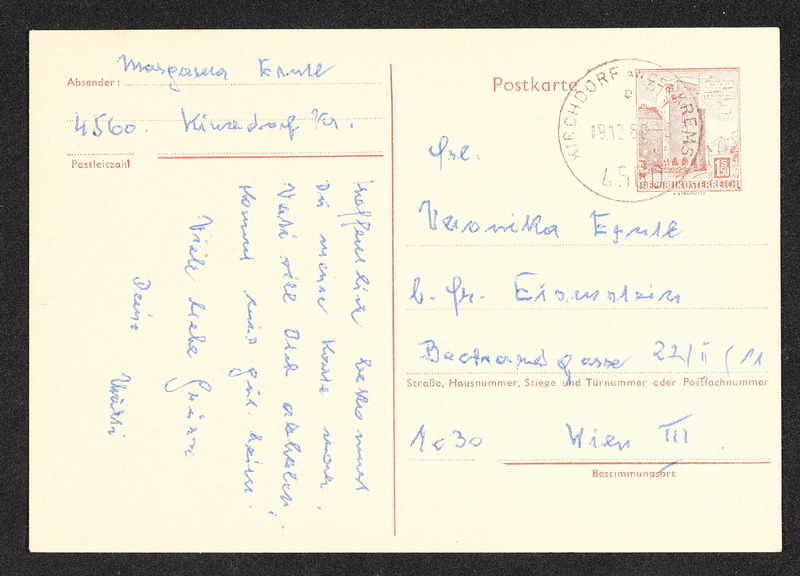 Absender: Margareta Ertl
4560. Kirchdorf/Kr.
Postleitzahl
Hoffentlich bekommst
Du meine Karte noch.
Vati will Dich abholen!
Kommt gut heim.
Viele liebe Grüße
Deine Mutti
Postkarte
KIRCHDORF AN DER KREMS
19.12.6
4560
S 1.50
REPUBLIK ÖSTERREICH
Frl.
Veronika Ertl
b. Fr. Eisenstein
gasse 22/II/11
Straße, Hausnummer, Stiege und Türnummer oder Postfachnummer
1030 Wien III
Bestimmungsort